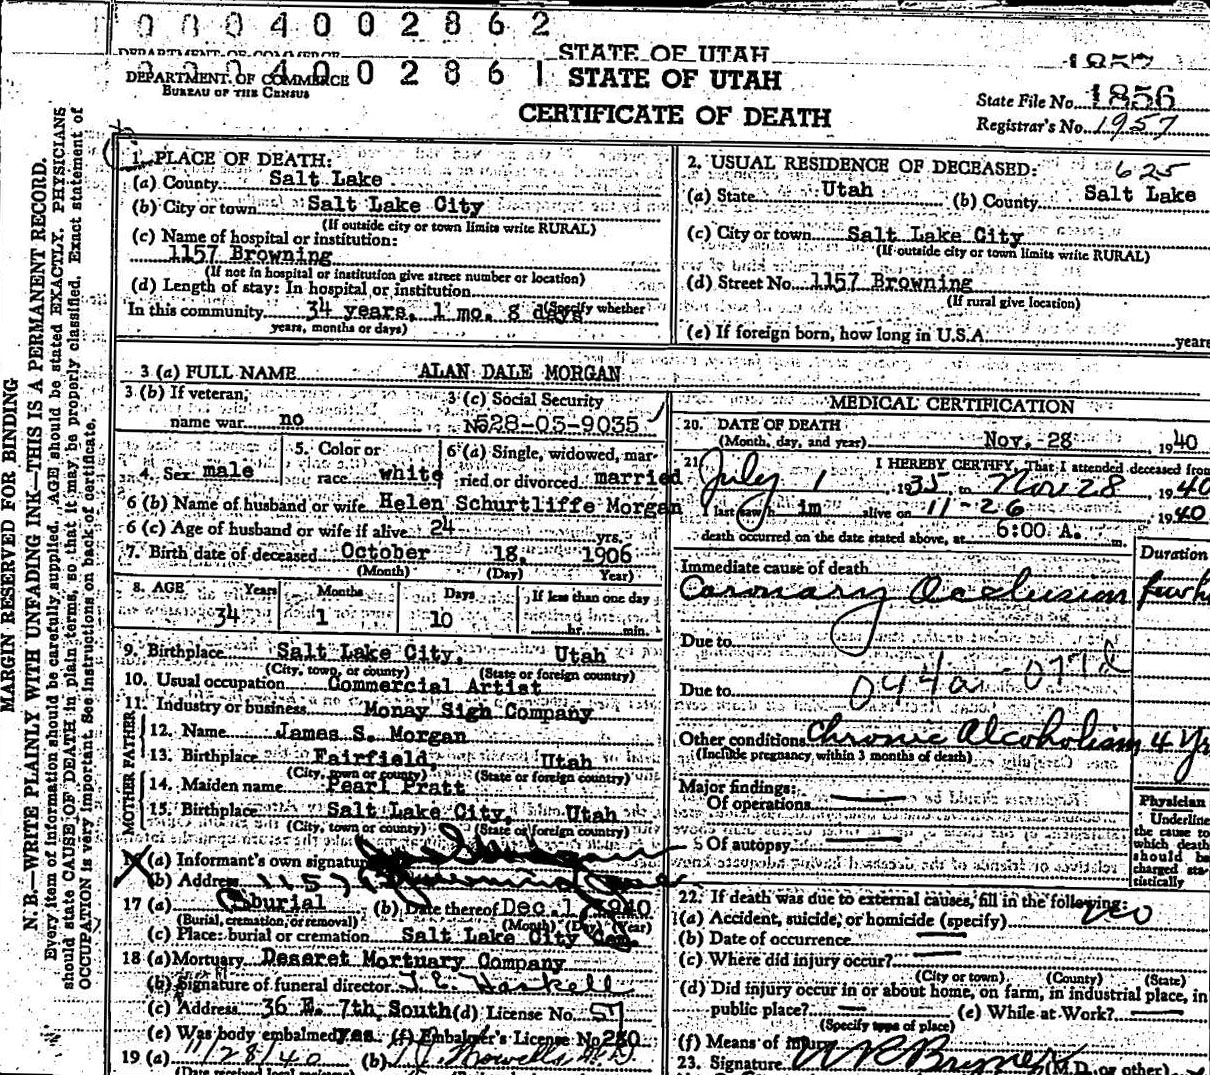 0 0 0 4 0 0 2 8 6 2
DEPARTMENT OF COMMERCE STATE OF UTAH 1857
0 0 0 4 0 0 2 8 6 1
DEPARTMENT OF COMMERCE STATE OF UTAH
BUREAU OF THE CENSUS
CERTIFICATE OF DEATH
State File No. 1856
Registrar's No. 1957
MARGIN RESERVED FOR BINDING
N. B.—WRITE PLAINLY WITH UNFADING INK—THIS IS A PERMANENT RECORD.
Every item of information should be carefully supplied. AGE should be stated EXACTLY. PHYSICIANS
should state CAUSE OF DEATH in plain terms, so that it may be properly classified. Exact statement of
OCCUPATION is very important. See instructions on back of certificate.
1. PLACE OF DEATH:
(a) County Salt Lake
(b) City or town Salt Lake City
(If outside city or town limits write RURAL)
(c) Name of hospital or institution:
1157 Browning
(If not in hospital or institution give street number or location)
(d) Length of stay: In hospital or institution
In this community 34 years, 1 mo. 8 days (Specify whether
years, months or days)
2. USUAL RESIDENCE OF DECEASED: 625
(a) State Utah (b) County Salt Lake
(c) City or town Salt Lake City
(If outside city or town limits write RURAL)
(d) Street No. 1157 Browning
(If rural give location)
(e) If foreign born, how long in U.S.A. years
3 (a) FULL NAME ALAN DALE MORGAN
3 (b) If veteran, 3 (c) Social Security
name war no No. 528-05-9035
4. Sex male 5. Color or race white 6 (a) Single, widowed, married or divorced married
6 (b) Name of husband or wife Helen Schurtliffe Morgan
6 (c) Age of husband or wife if alive 24 yrs.
7. Birth date of deceased October 18, 1906
(Month) (Day) Year)
8. AGE Years Months Days If less than one day
34 1 10 hr. min.
9. Birthplace Salt Lake City, Utah
(City, town, or county) (State or foreign country)
10. Usual occupation Commercial Artist
11. Industry or business Monay Sign Company
FATHER
12. Name James S. Morgan
13. Birthplace Fairfield, Utah
(City, town or county) (State or foreign country)
MOTHER
14. Maiden name Pearl Pratt
15. Birthplace Salt Lake City, Utah
(City, town or county) (State or foreign country)
(a) Informant's own signature
(b) Address 1157
17 (a) burial (b) Date thereof Dec. 1 1940
(Burial, cremation, or removal) (Month) (Day) (Year)
(c) Place: burial or cremation Salt Lake City Cem.
18 (a) Mortuary Deseret Mortuary Company
(b) Signature of funeral director J. E. Haskell
(c) Address 36 E. 7th South (d) License No. 57
(e) Was body embalmed yes (f) Embalmer's License No 280
19 (a) 11/28/40 (b)
(Date received local
MEDICAL CERTIFICATION
20. DATE OF DEATH
(Month, day, and year) Nov. 28 1940
21. I HEREBY CERTIFY, That I attended deceased from
July 1 1935 to Nov 28 1940
last saw him alive on 11-26 1940
death occurred on the date stated above, at 6:00 A. m.
Duration
Immediate cause of death
Coronary Occlusion few h
Due to
Due to 094a-077d
Other conditions Chronic Alcoholism 4 Yr
(Include pregnancy within 3 months of death)
Major findings:
Of operations
Of autopsy
Physician
Underline
the cause to
which death
should be
charged sta-
tistically
22. If death was due to external causes, fill in the following: no
(a) Accident, suicide, or homicide (specify)
(b) Date of occurrence
(c) Where did injury occur?
(City or town) (County) (State)
(d) Did injury occur in or about home, on farm, in industrial place, in
public place? (e) While at Work?
(Specify type of place)
(f) Means of injury
23. Signature (M.D. or other)